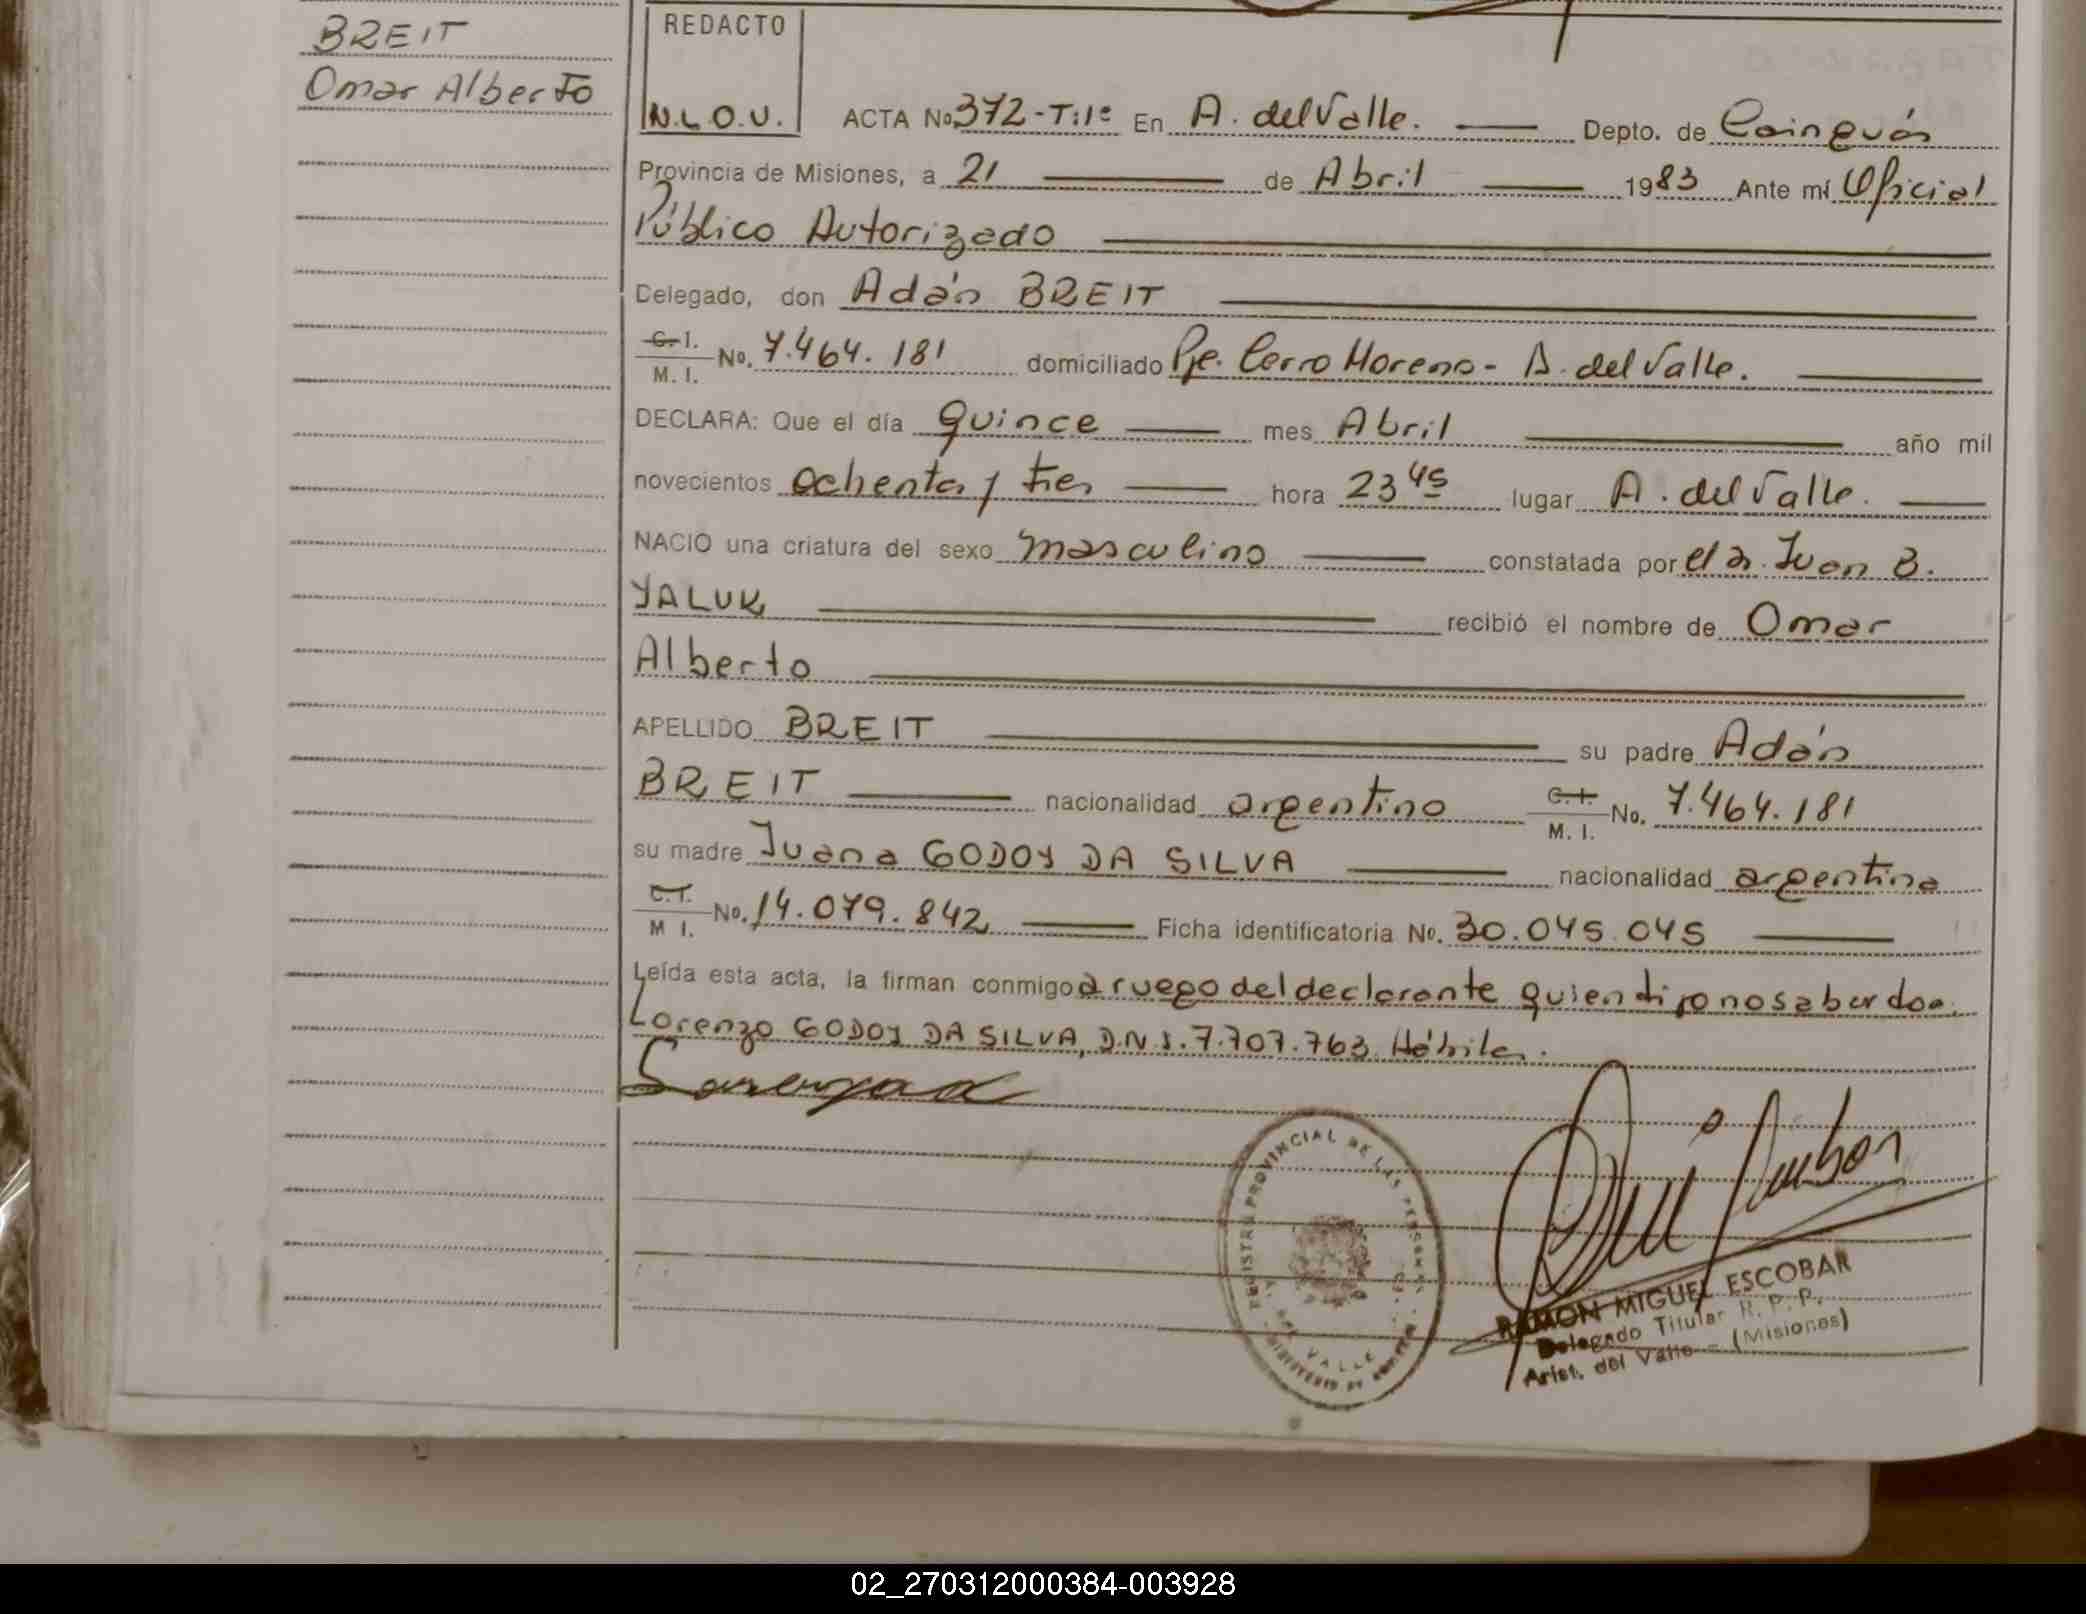 BREIT
Omar Alberto
REDACTO
N.L.O.V.
ACTA No 372-T:1º En A. del Valle. Depto. de Cainguás
Provincia de Misiones, a 21 de Abril 1983 Ante mí Oficial
Público Autorizado
Delegado, don Adán BREIT
C.I. M.I. No. 7.464.181 domiciliado Pje. Cerro Moreno - A. del Valle.
DECLARA: Que el día quince mes Abril año mil
novecientos ochenta y tres hora 23 45 lugar A. del Valle.
NACIO una criatura del sexo masculino constatada por el Dr. Juan B.
YALUK recibió el nombre de Omar
Alberto
APELLIDO BREIT su padre Adán
BREIT nacionalidad argentino C.I. M.I. No. 7.464.181
su madre Juana GODOY DA SILVA nacionalidad argentina
C.I. M I. No. 14.079.842 Ficha identificatoria No. 30.045.045
Leída esta acta, la firman conmigo a ruego del declarante quien dijo no saber don
Lorenzo GODOY DA SILVA, D.N.I. 7.707.763 Hábiles.
REGISTRO PROVINCIAL DE LAS PERSONAS
A. DEL VALLE
RAMON MIGUEL ESCOBAR
Delegado Titular R. P. P.
Arist. del Valle - (Misiones)
02_270312000384-003928